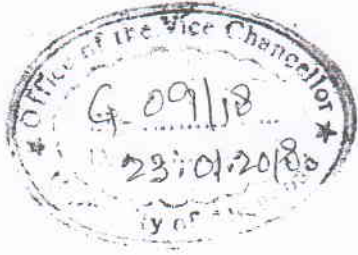 Office of the Vice Chancellor
G-09/18
23.01.2018